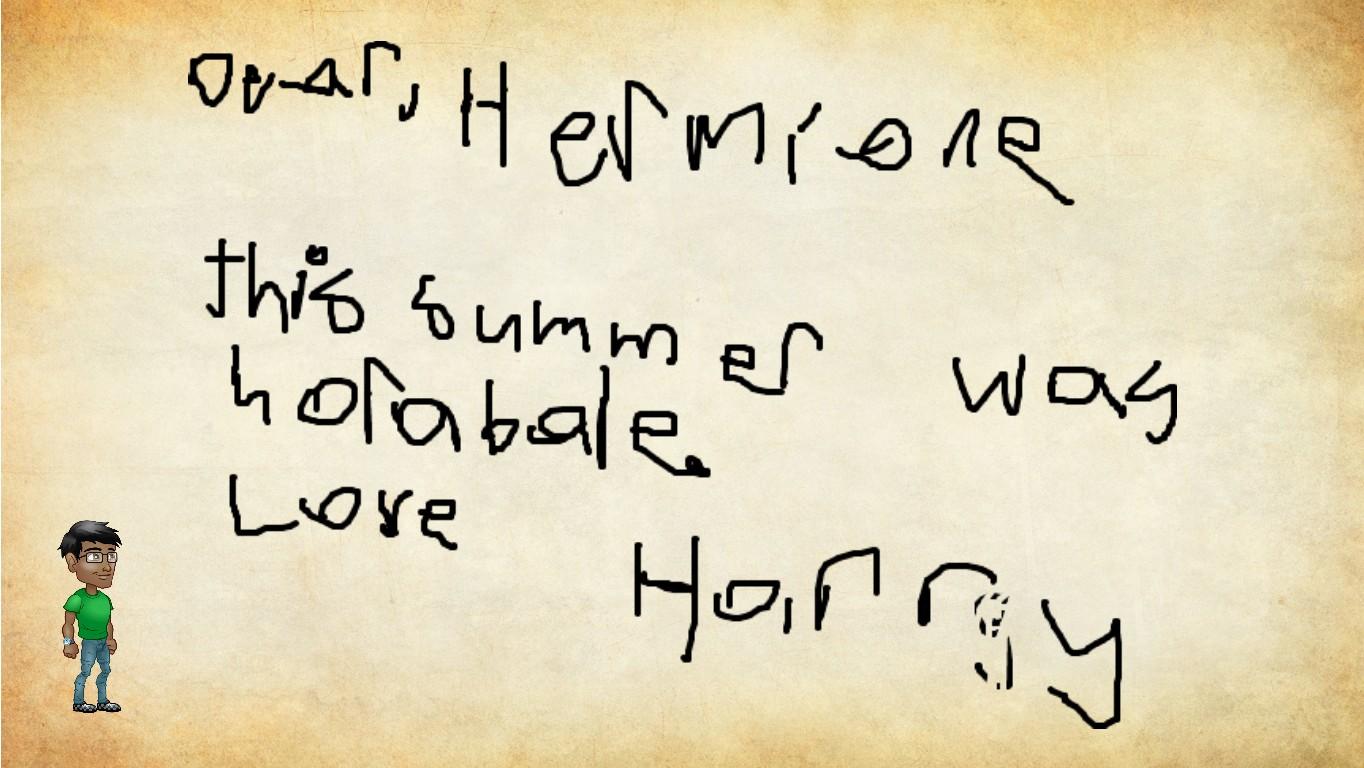 Dear, Hermione
this summer was
horabale.
Love
Harry